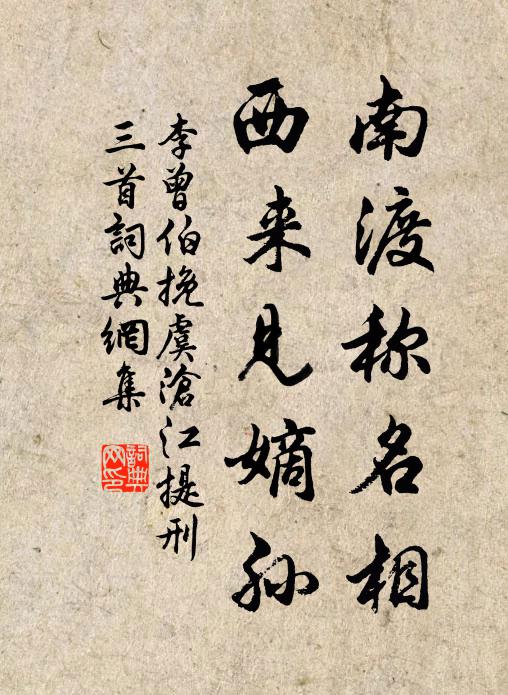 南渡称名相
西来见嫡孙
李曾伯挽虞滄江提刑
三首詞典網集
詞典网印